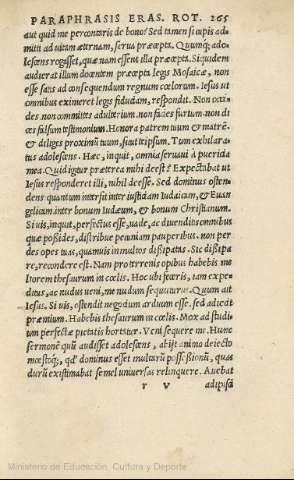 PARAPHRASIS ERAS. ROT. 265
aut quid me percontaris de bono? Sed tamen si cupis ad-
mitti ad vitam æternam, serva præcepta. Quumq; ado-
lescens rogasset, quænam essent illa præcepta. Siquidem
audierat illum docentem præcepta legis Mosaicæ, non
esse satis ad consequendum regnum cœlorum. Iesus ut
omnibus eximeret legis fiduciam, respondit. Non occi-
des non committes adulterium. non facies furtum. non di-
ces falsum testimonium. Honora patrem tuum & matrē.
& diliges proximū tuum, sicut teipsum. Tum exhilara-
tus adolescens. Hæc, inquit, omnia servavi à pueritia
mea. Quid igitur præterea mihi deest? Expectabat ut
Iesus responderet illi, nihil deesse. Sed dominus osten-
dens quantum intersit inter iustum Iudaicum, & Euan-
gelicam inter bonum Iudæum, & bonum Christianum.
Si vis, inquit, perfectus esse, vade, ac divende omnibus
quæ possides, distribue pecuniam pauperibus. non per-
des opes tuas, quamvis in multos dissipatas. Sic dissipa-
re, recondere est. Nam pro terrenis opibus habebis me
liorem thesaurum in cœlis. Hoc ubi feceris, iam expe-
ditus, ac nudus veni, me nudum sequuturus. Quum ait
Iesus. Si vis, ostendit negocium arduum esse. sed adiecit
præmium. Habebis thesaurum in cœlis. Mox ad studi-
um perfectæ pietatis hortatur. Veni sequere me. Hunc
sermonē quū audisset adolescens, abijt animo deiecto
mœstoq;, qd' dominus esset multarū possessionū, quas
durū existimabat semel universas relinquere. Avebat
r V adipisci
Ministerio de Educación, Cultura y Deporte